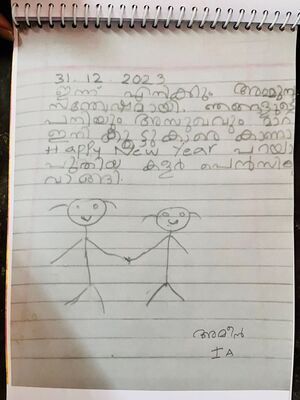 31. 12 2023
ഇന്ന് എനിക്കും അമ്മയ
സന്തോഷമായി. ഞങ്ങളുടെ
പനിയും അസുഖവും മാറി
ഇനി കൂട്ടുകാരെ കാണാ
Happy New Year പറയാ
പുതിയ കളർ പെൻസിൽ
വാങ്ങി.
അമീൻ
I A